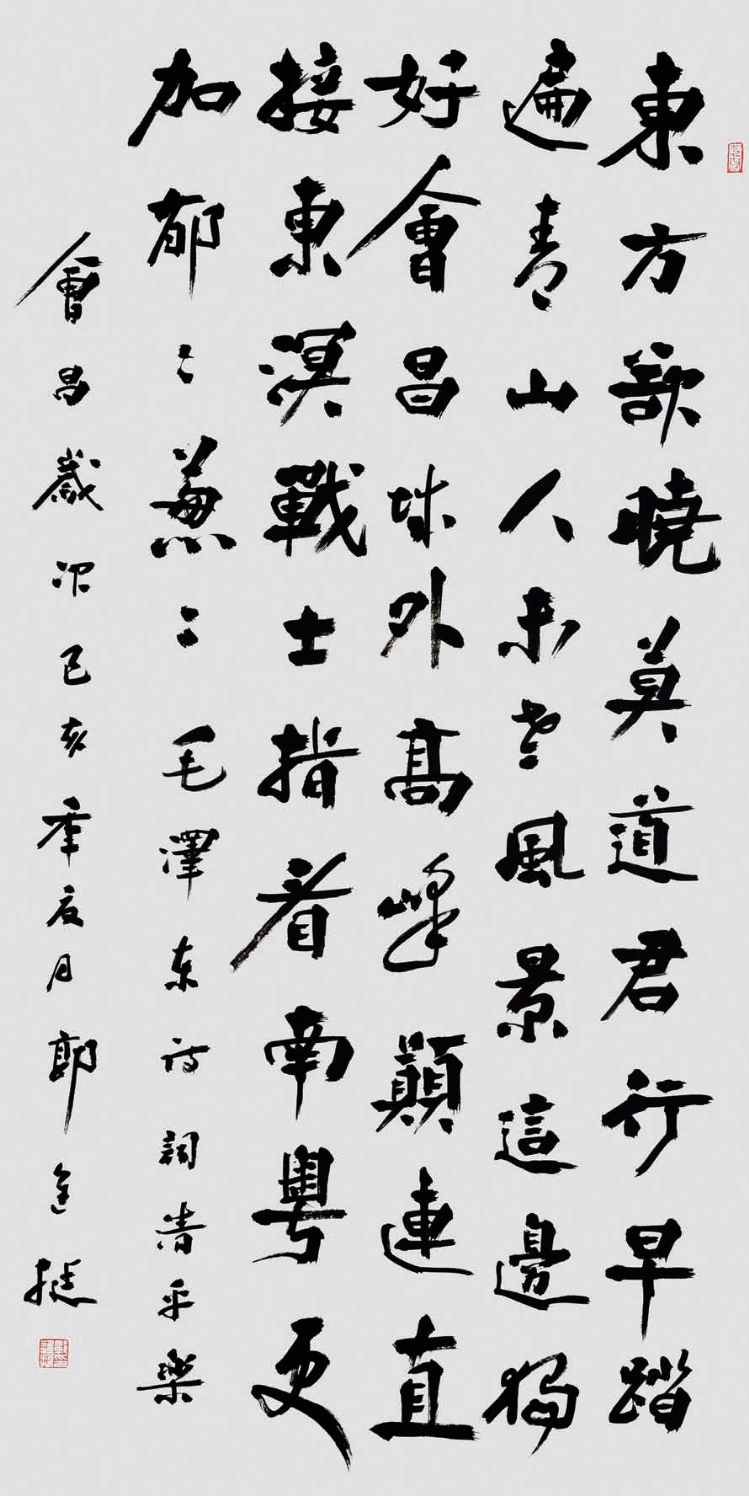 東方欲曉莫道君行早踏
遍青山人未老風景這邊獨
好會昌城外髙峰顛連直
接東溟戰士指看南粵更
加郁〻蔥〻毛澤東詩詞清平樂
會昌歲次己亥夏月